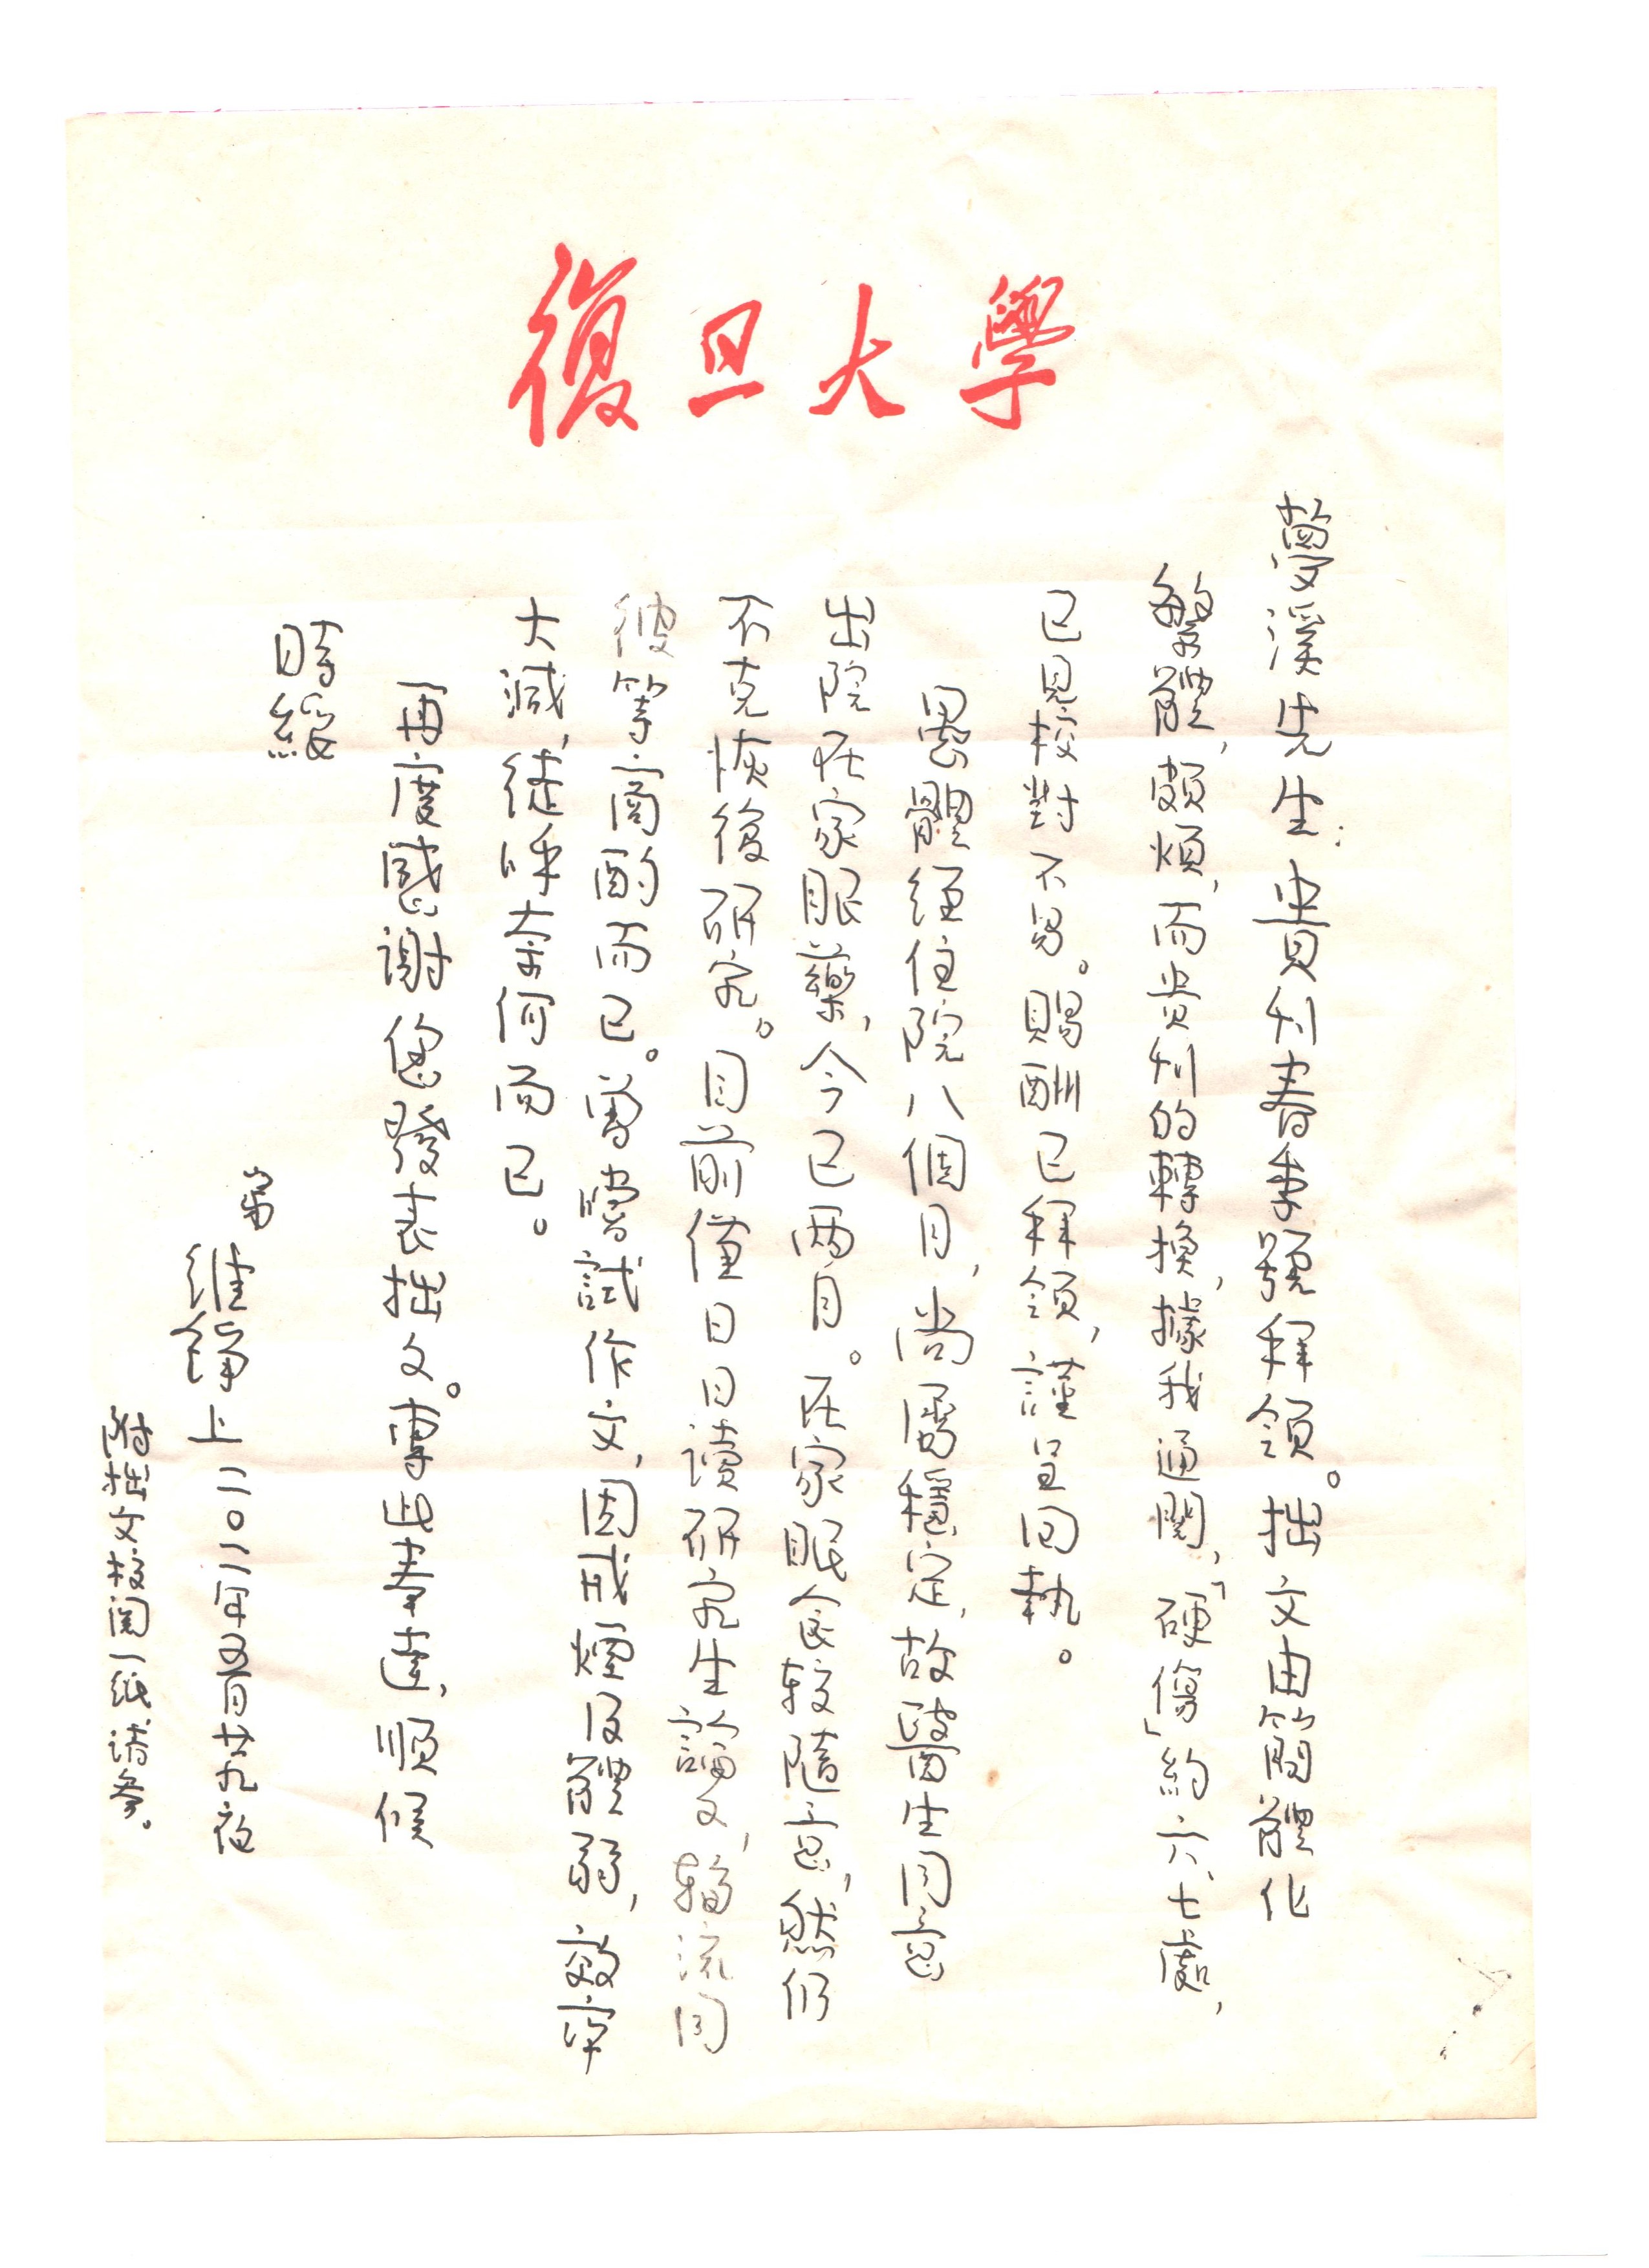 復旦大學
夢溪先生：貴刊春季號釋領。拙文由簡體化
繁體，頗煩，而貴刊的轉換，據我通閱，「硬傷」約六、七處，
已見校對不易。賜酬已釋領，謹呈回執。
愚體經住院八個月，尚屬穩定，故醫生同意
出院在家服藥，今已兩月。在家眠食較隨意，然仍
不克恢復研究。目前僅日日讀研究生論文，輪流同
彼等商酌而已。曾嚐試作文，因戒煙及體弱，效率
大減，徒呼奈何而已。
再度感謝您發表拙文。專此奉達，順候
時綏
弟
維錚上 二〇一二年五月廿九夜
附拙文校閱一紙請參。